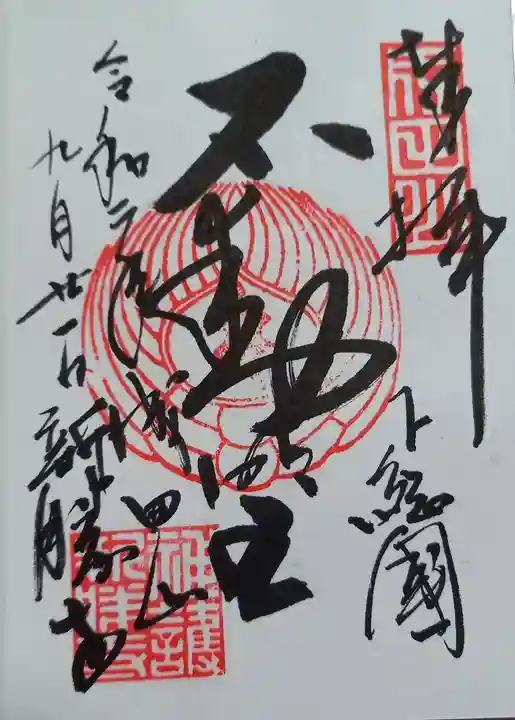 奉拝
下総國
不動明王
令和元年
九月廿一日
成田山
新勝寺
成田山